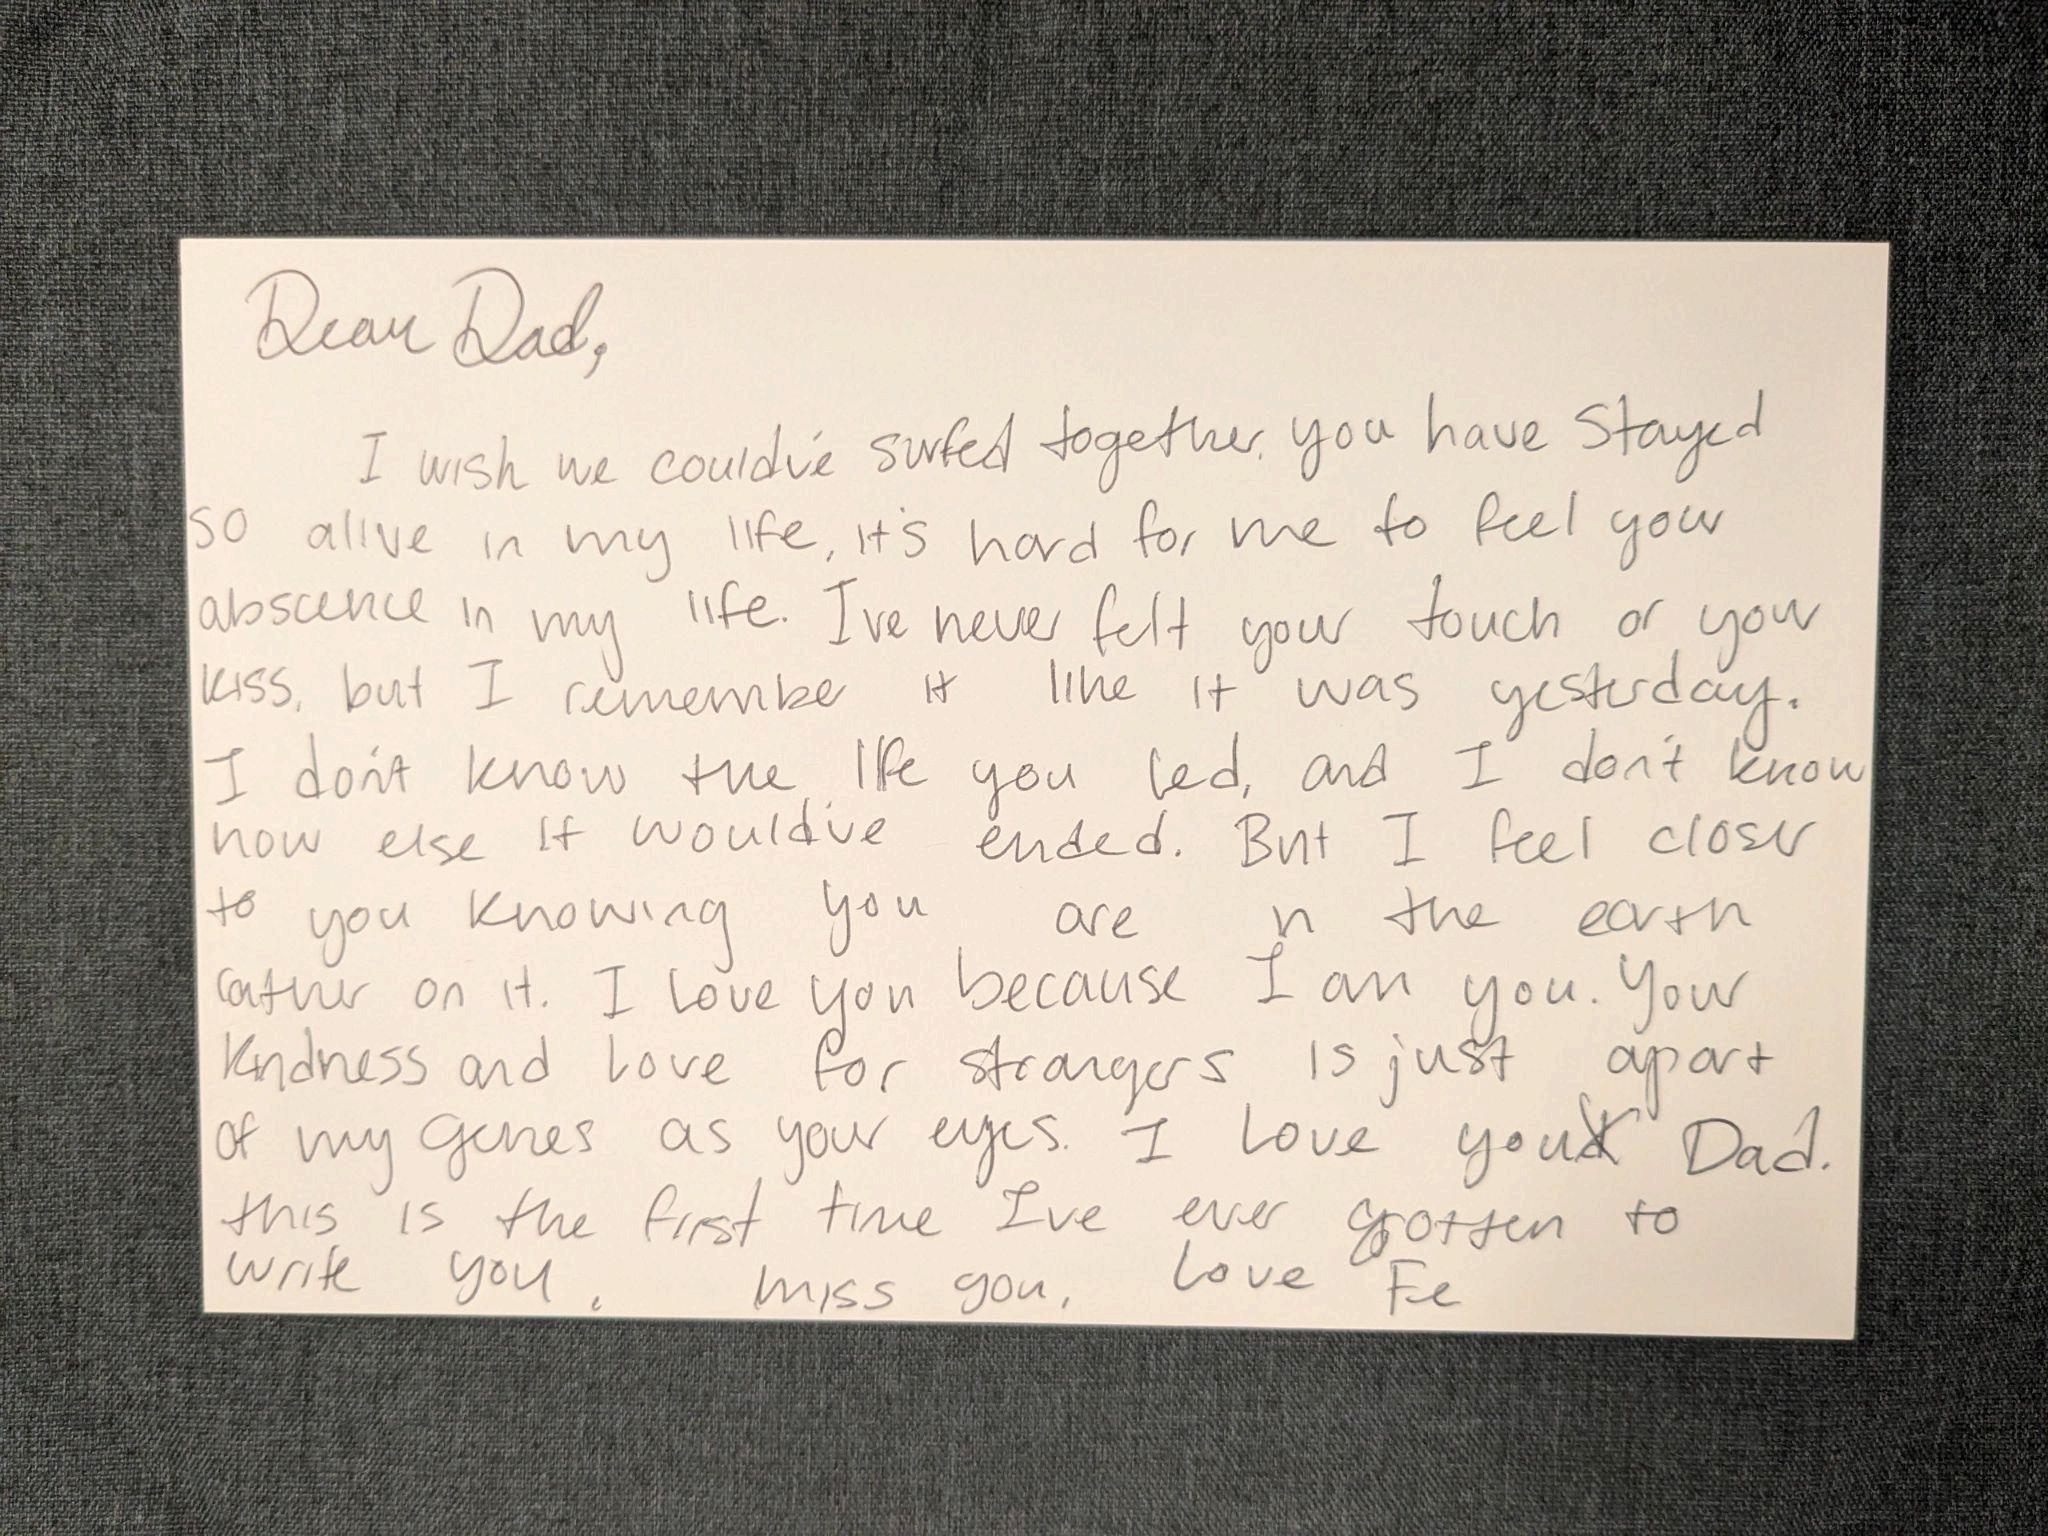 Dear Dad,
I wish we could've surfed together. you have stayed
so alive in my life, it's hard for me to feel your
abscence in my life. I've never felt your touch or your
kiss, but I remember it like it was yesterday.
I don't know the life you led, and I don't know
how else it would've ended. But I feel closer
to you knowing you are in the earth
rather on it. I love you because I am you. Your
kindness and love for strangers is just apart
of my genes as your eyes. I love you Dad.
this is the first time I've ever gotten to
write you. miss you, love Fe